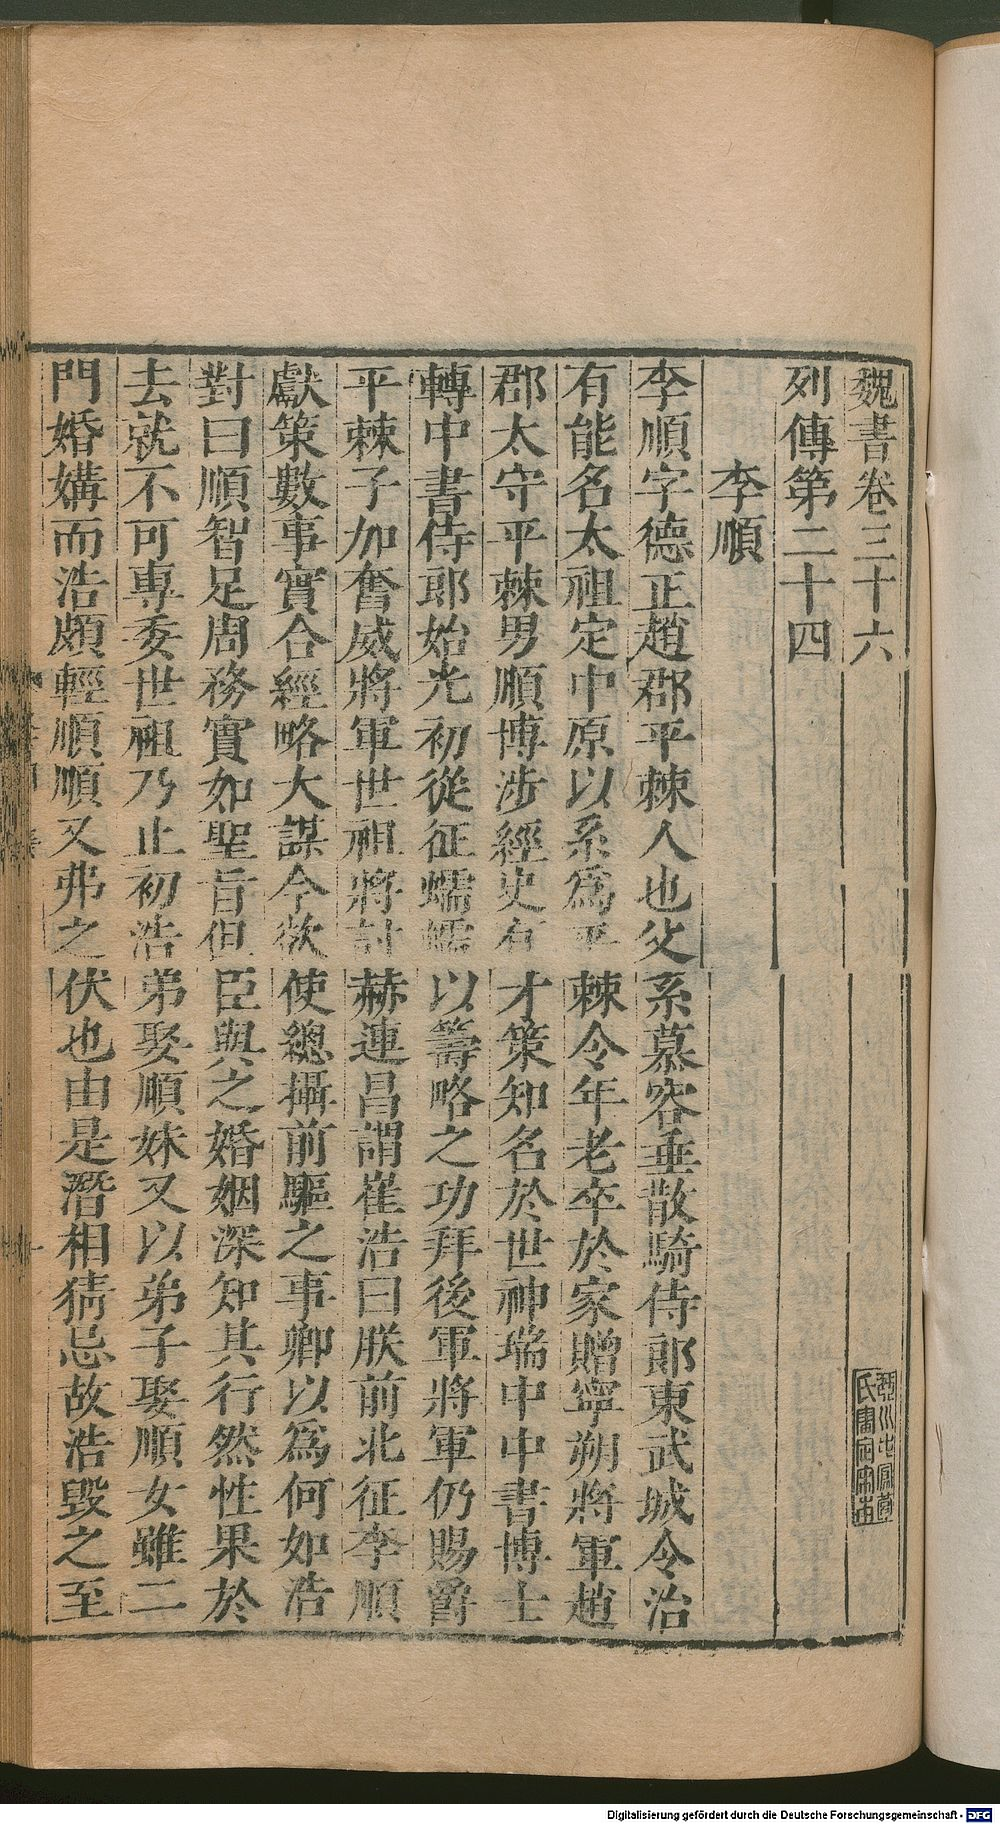 魏書卷三十六
琴川毛鳳苞
氏審定宋本
列傳第二十四
李順
李順字德正趙郡平棘人也父系慕容垂散騎侍郎東武城令治
有能名太祖定中原以系爲平棘令年老卒於家贈寧朔將軍趙
郡太守平棘男順博涉經史有才策知名於世神瑞中中書博士
轉中書侍郎始光初從征蠕蠕以籌略之功拜後軍將軍仍賜爵
平棘子加奮威將軍世祖將討赫連昌謂崔浩曰朕前北征李順
獻策數事實合經略大謀今欲使總攝前驅之事卿以爲何如浩
對曰順智足周務實如聖旨但臣與之婚姻深知其行然性果於
去就不可專委世祖乃止初浩弟娶順妹又以弟子娶順女雖二
門婚媾而浩頗輕順順又弗之伏也由是潛相猜忌故浩毀之至
Digitalisierung gefördert durch die Deutsche Forschungsgemeinschaft - DFG